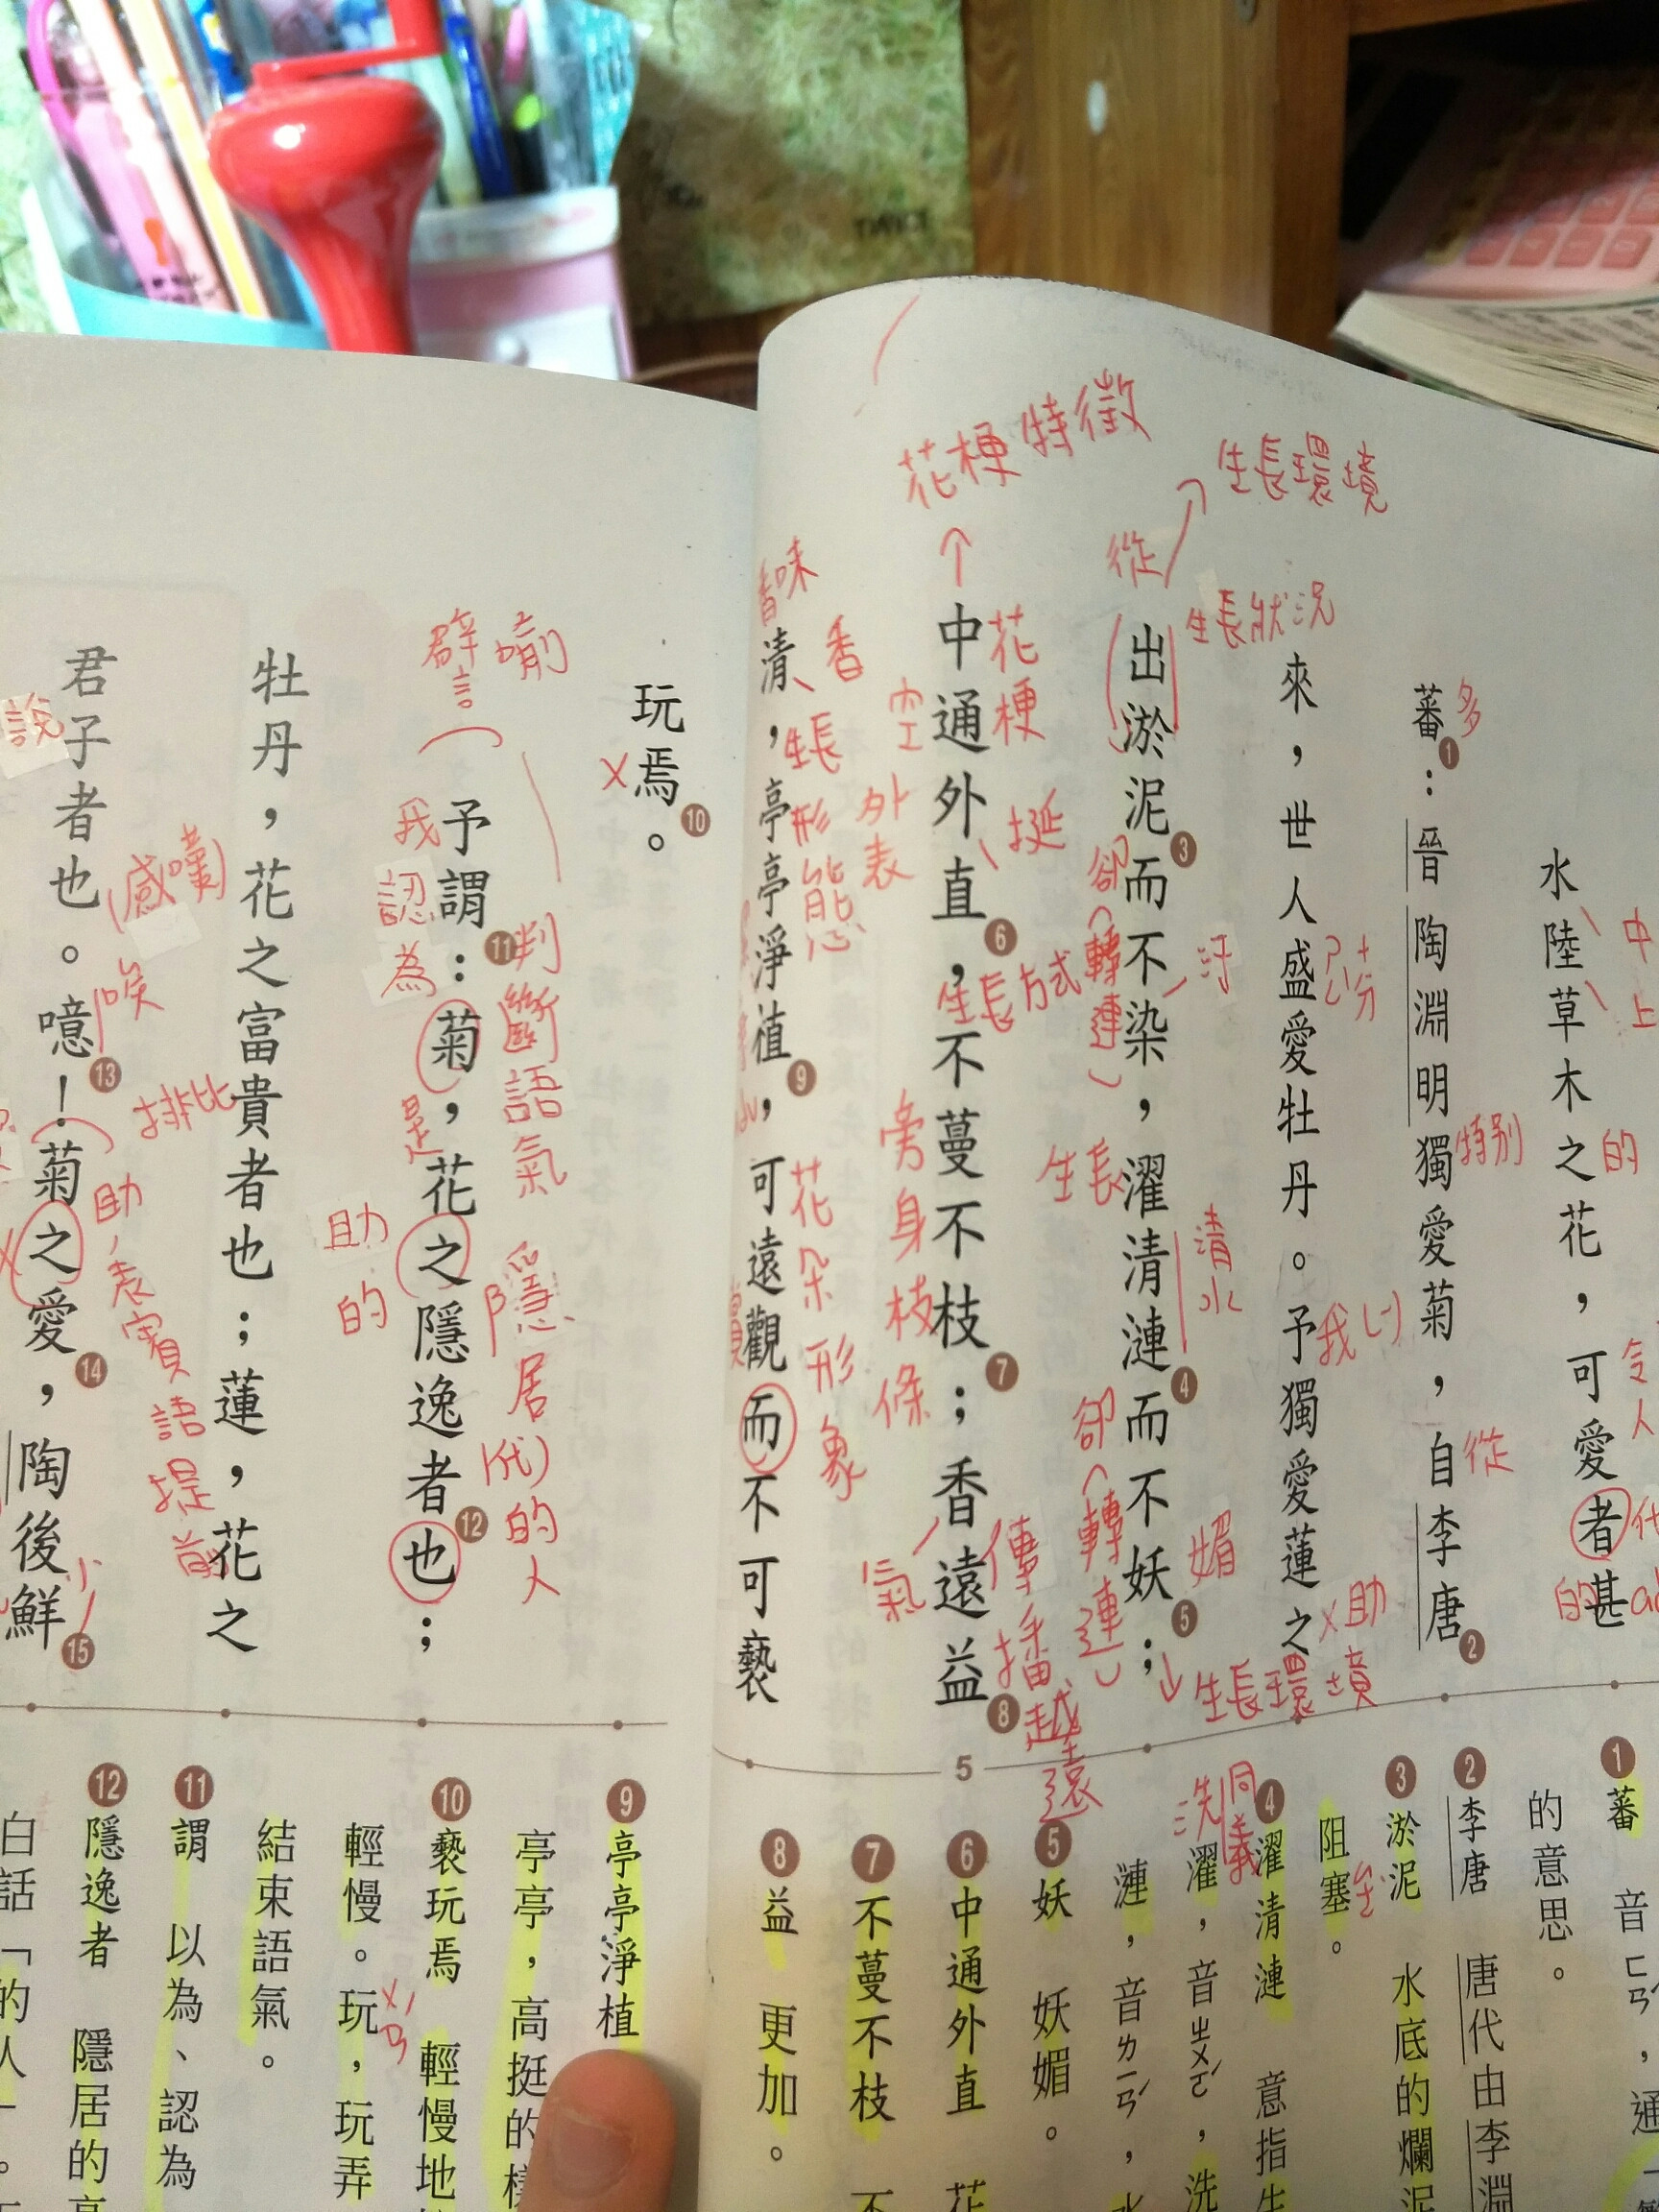 水陸草木之花，可愛者甚
蕃❶：晉陶淵明獨愛菊，自李唐❷
來，世人盛愛牡丹。予獨愛蓮之
出淤泥❸而不染，濯清漣❹而不妖❺；
中通外直❻，不蔓不枝❼；香遠益❽
清，亭亭淨植❾，可遠觀而不可褻
玩焉❿。
予謂⓫：菊，花之隱逸者也⓬；
牡丹，花之富貴者也；蓮，花之
君子者也。噫⓭！菊之愛⓮，陶後鮮⓯
中
上
的
令人
的
多
特別
從
十分
我
助
生長環境
從
生長狀況
卻(轉連)
汙
生長
清水
卻(轉連)
媚
生長環境
花梗特徵
花梗
空
外表
挺
生長方式
旁身枝條
氣
傳播越遠
香味
香
生長形態
花朵形象
譬喻
我認為
判斷語氣
是
助
的
隱居
(代)
的人
排比
說
(感嘆)
唉
助，表賓語提前
少
❶蕃 音ㄈㄢˊ，通
的意思。
❷李唐 唐代由李淵
❸淤泥 水底的爛泥
阻塞。
❹濯清漣 意指生
濯，音ㄓㄨㄛˊ，洗
漣，音ㄌㄧㄢˊ，水
❺妖 妖媚。
❻中通外直 花
❼不蔓不枝 不
❽益 更加。
洗
同義
5
❾亭亭淨植
亭亭，高挺的樣
❿褻玩焉 輕慢地
輕慢。玩，玩弄
ㄨㄢˊ
結束語氣。
⓫謂 以為、認為
⓬隱逸者 隱居的高
白話「的人」。
TWICE